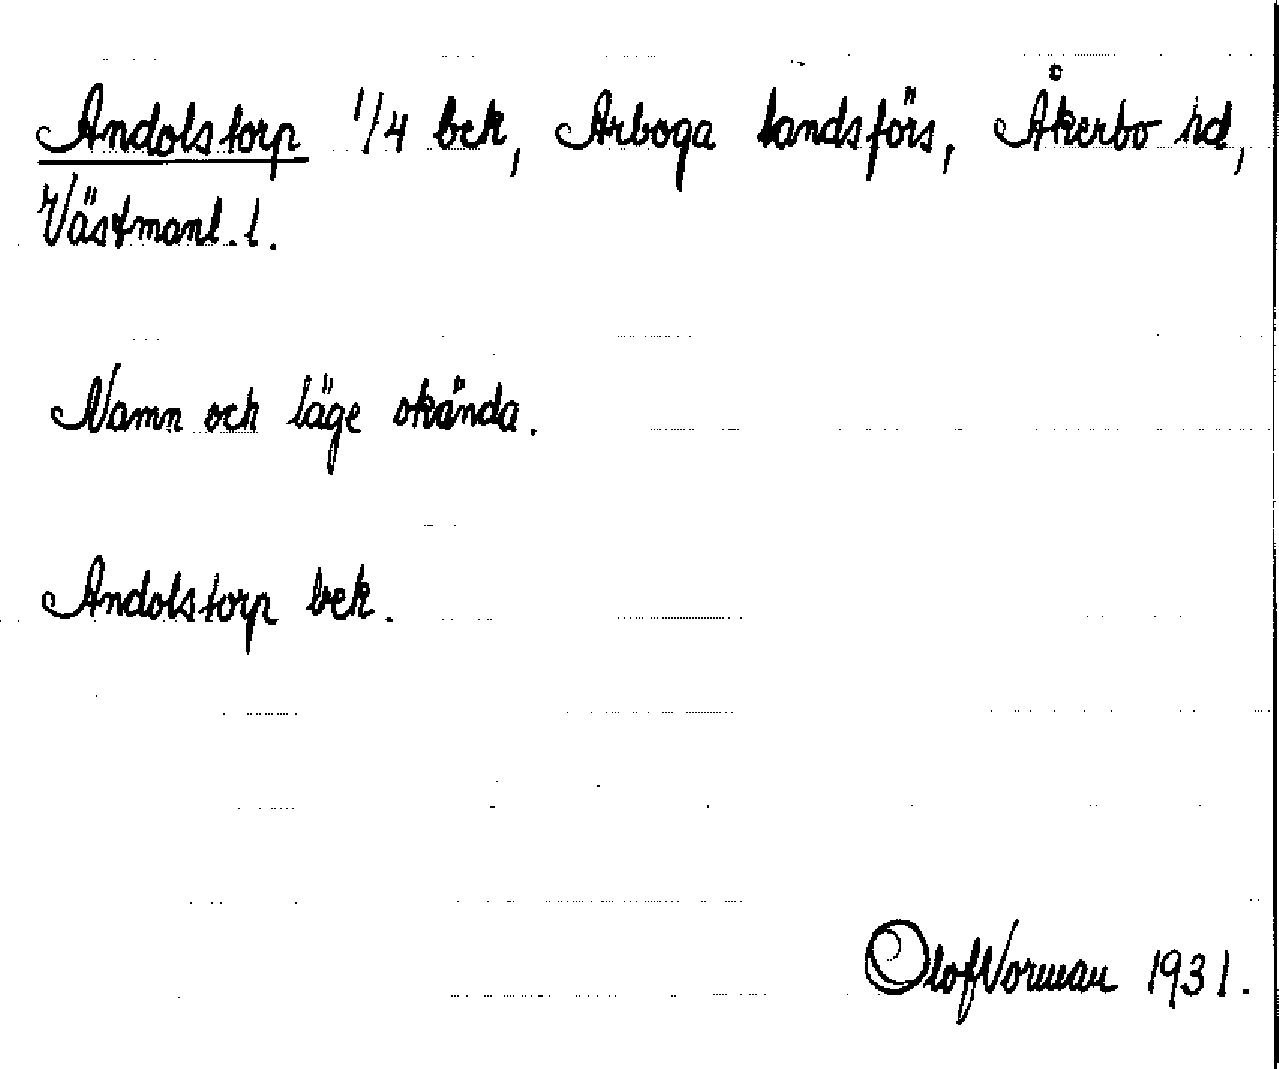 Andolstorp 1/4 bek, Arboga landsförs, Åkerbo hd,
Västmanl. l.
Namn och läge okända.
Andolstorp bek.
Olof Norman 1931.